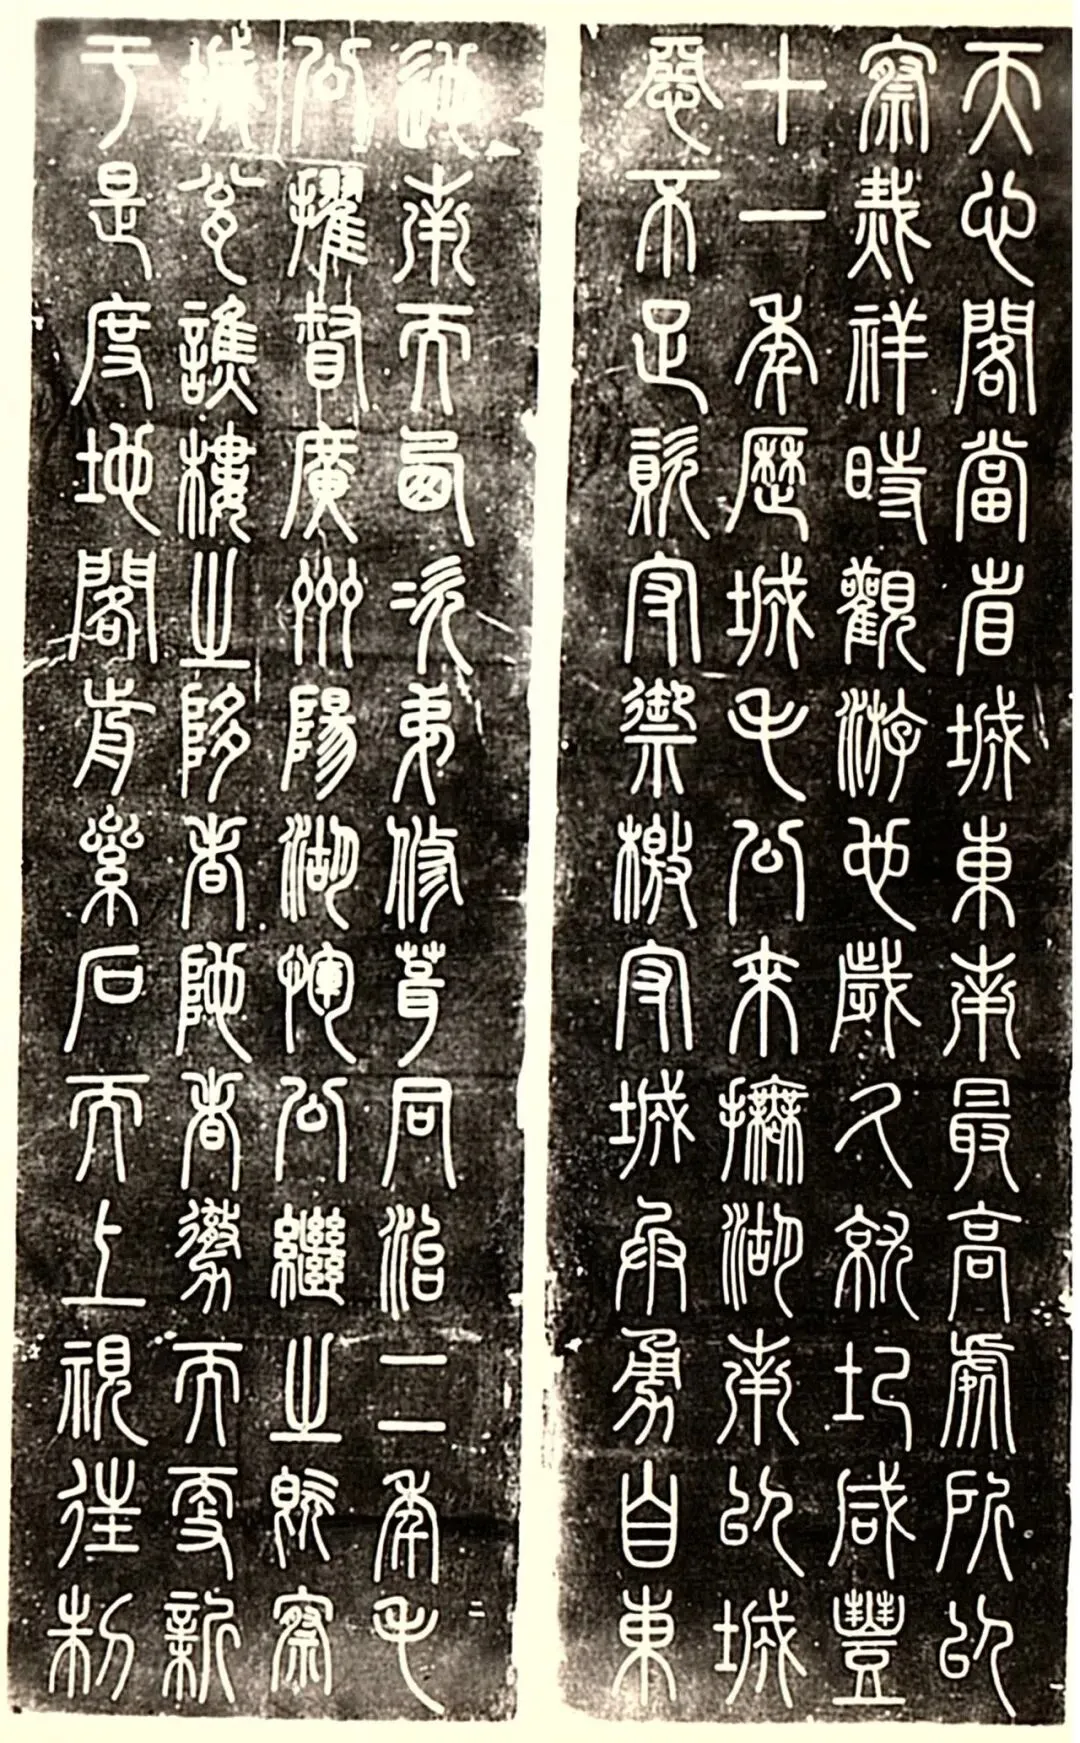 天心閣當省城東南最高處所以
察烖祥時觀游也歲久就圮咸豐
十一年歷城毛公來撫湖南以城
惡不足資守禦檄守城兵勇自東
迆南而西次弟修葺同治二年毛
公擢督廣州陽湖惲公繼之既察
城瓮譙樓之陊者陋者勶而更新
于是度地閣歬絫石而上視往制